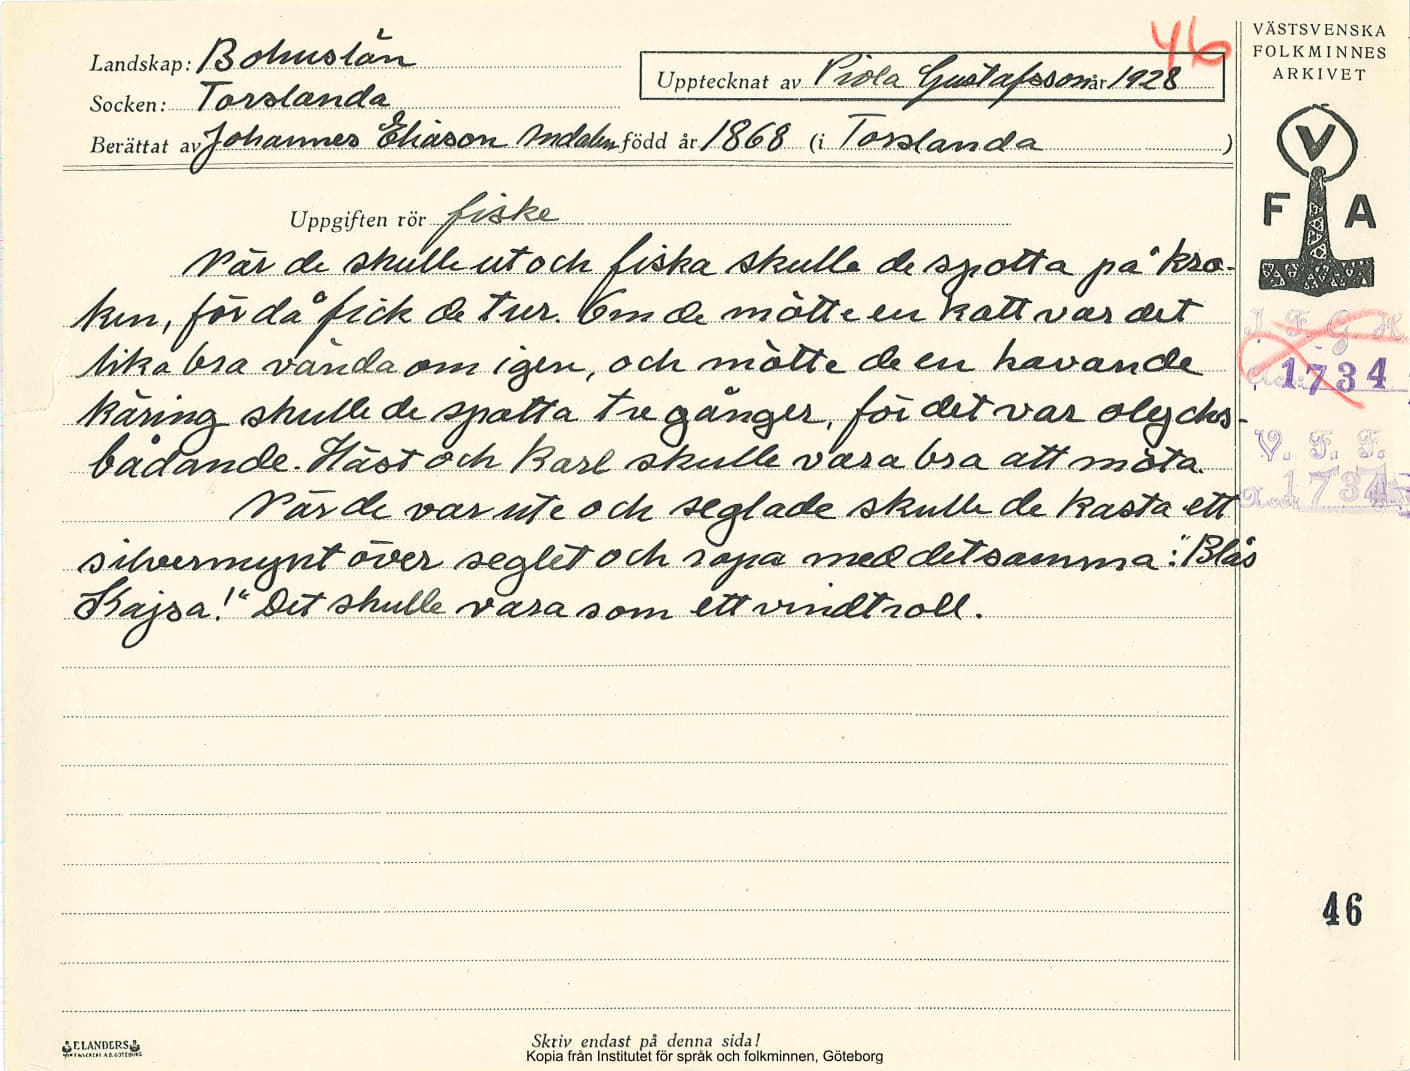 46
VÄSTSVENSKA
FOLKMINNES
ARKIVET
Landskap: Bohuslän
Upptecknat av Viola Gustafsson år 1928
Socken: Torslanda
Berättat av Johannes Eliason född år 1868 (i Torslanda )
V
F A
Uppgiften rör fiske
När de skulle ut och fiska skulle de spotta på kro-
ken, för då fick de tur. Om de mötte en katt var det
lika bra vända om igen, och mötte de en havande
käring skulle de spotta tre gånger, för det var olycks-
bådande. Häst och karl skulle vara bra att möta.
När de var ute och seglade skulle de kasta ett
silvermynt över seglet och ropa med detsamma: "Blås
Kajsa!" Det skulle vara som ett vindtroll.
I. F. G. H.
Acc. 1734
V. F. F.
Acc. 1734
46
ELANDERS
Skriv endast på denna sida!
Kopia från Institutet för språk och folkminnen, Göteborg